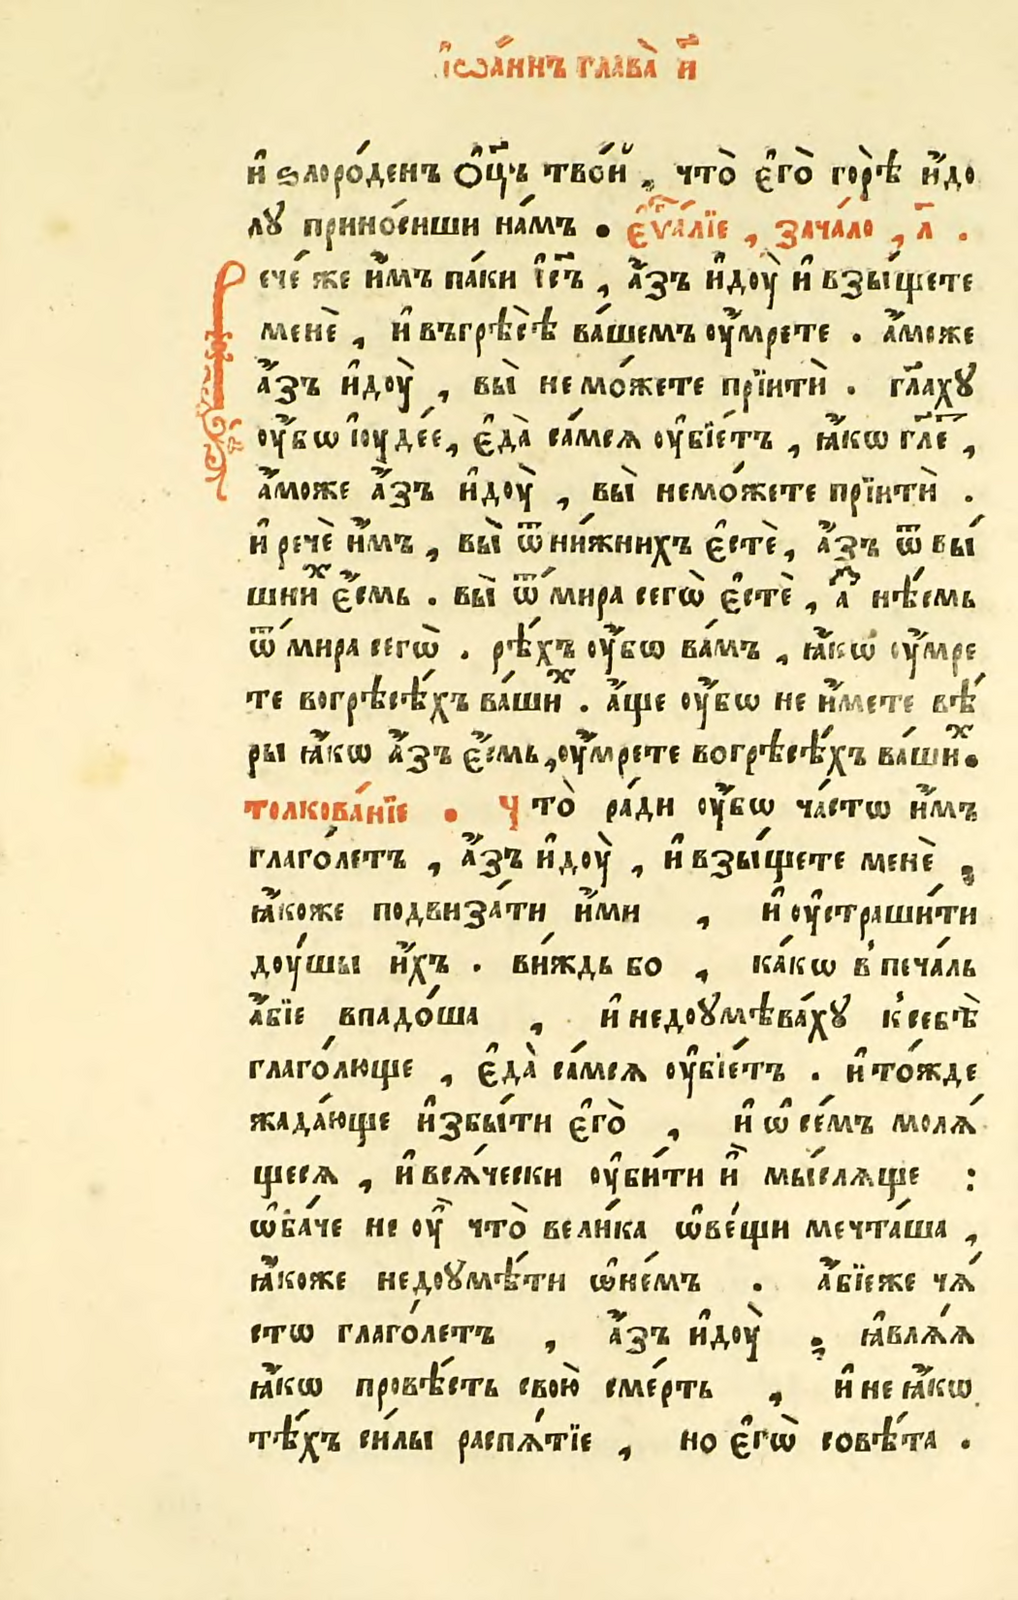 І҆ѡа́ннъ глава̀ и҃
и҆ ѕлоро́денъ ѻ҆ц҃ъ тво́й , что̀ є҆го̀ горѣ̀ и҆̀до
лꙋ прино́сиши на́мъ • є҆ѵⷢ҇а́лїе , зача́ло , л҃ .
Рече́ же и҆̀мъ па́ки і҆с҃ъ , а҆́зъ и҆доу̀ и҆ взы́щете
менѐ , и҆ въгрѣ́сѣ ва́шемъ оу҆́мрете . а҆́може
а҆́зъ и҆доу̀ , вы̀ не мо́жете прїитѝ . гл҃ахꙋ
оу҆́бѡ і҆оуде́е, є҆да̀ са́мсѧ оу҆бїе́тъ , ꙗ҆́кѡ гл҃е ,
а҆́може а҆́зъ и҆доу̀ , вы̀ немо́жете прїитѝ .
и҆ речѐ и҆̀мъ , вы̀ ѿ ни́жнихъ є҆стѐ , а҆́зъ ѿ вы́
шниⷯ є҆́смь . вы̀ ѿ ми́ра сегѡ̀ є҆стѐ , а҆́ⷥ нѣ́смь
ѿ ми́ра сегѡ̀ . рѣ́хъ оу҆́бѡ ва́мъ , ꙗ҆́кѡ оу҆́мре
те вогрѣсѣ́хъ ва́шиⷯ . а҆́ще оу҆́бѡ не и҆́мете вѣ́
ры ꙗ҆́кѡ а҆́зъ є҆́смь, оу҆́мрете вогрѣсѣ́хъ ва́шиⷯ•
толкова́нїе • Что̀ ра́ди оу҆́бѡ ча́стѡ и҆̀мъ
глаго́летъ , а҆́зъ и҆доу̀ , и҆ взы́щете менѐ ;
ꙗ҆́коже подвиза́ти и҆́ми , и҆ оу҆страши́ти
доу́шы и҆́хъ . ви́ждь бо , ка́кѡ в̾ печа́ль
а҆́бїе впадо́ша , и҆ недоꙋмѣва́хꙋ к̾ себѣ̀
глаго́люще , є҆да̀ са́мсѧ оу҆бїе́тъ . и҆ то́жде
жада́юще и҆збы́ти є҆го̀ , и҆ ѡ҆ се́мъ молѧ́
щесѧ , и҆ всѧ́чески оу҆би́ти и҆̀ мы́слѧще :
ѡ҆ба́че не оу҆̀ что̀ вели́ка ѡ҆ве́щи мечта́ша ,
ꙗ҆́коже недоꙋмѣ́ти ѡ҆не́мъ . а҆́бїеже чѧ́
стѡ глаго́летъ , а҆́зъ и҆доу̀ ; ꙗ҆влѧ́ѧ
ꙗ҆́кѡ провѣ́сть свою̀ сме́рть , и҆ не ꙗ҆́кѡ
тѣ́хъ си́лы распѧ́тїе , но є҆гѡ̀ совѣ́та .